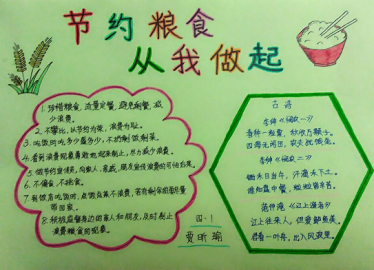 节约粮食
从我做起
1.珍惜粮食,适量定餐,避免剩餐,减
少浪费。
2.不攀比,以节约为荣,浪费为耻。
3.吃饭时吃多少盛多少,不扔剩饭剩菜。
4.看到浪费现象勇敢地起来制止,尽力减少浪费。
5.做节约宣传员,向家人、亲戚、朋友宣传浪费的可怕后果。
6.不偏食,不挑食。
7.
带回家。
8.积极监督身边的亲人和朋友,及时制止
浪费粮食的现象。
四·1
贾昕瑜
古诗
李绅《悯农一》
春种一粒粟,秋收万颗子。
四海无闲田,农夫犹饿死。
李绅《悯农二》
锄禾日当午,汗滴禾下土。
谁知盘中餐,粒粒皆辛苦。
范仲淹《江上渔者》
江上往来人,但爱鲈鱼美。
君看一叶舟,出入风波里。